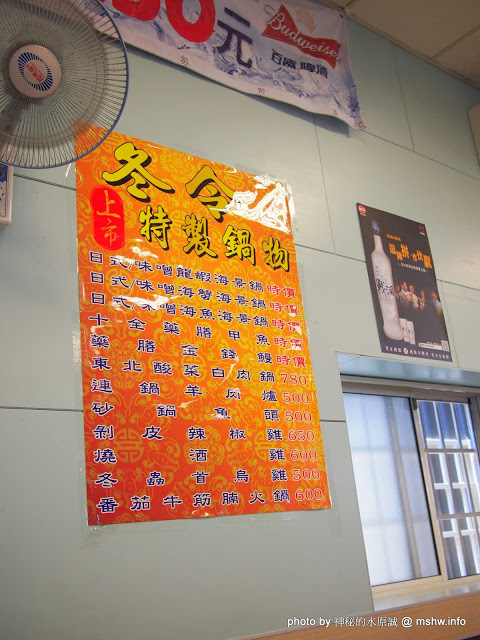 50元
Budweiser
百威啤酒
冬令
上市
特製鍋物
日式/味噌龍蝦海景鍋 時價
日式/味噌海蟹海景鍋 時價
日式/味噌海魚海景鍋 時價
十全藥膳甲魚 時價
藥膳金錢鰻 時價
東北酸菜白肉鍋 780
連鍋羊肉爐 500
砂鍋魚頭 500
剝皮辣椒雞 650
燒酒雞 600
冬蟲首烏雞 500
番茄牛筋腩火鍋 600
photo by 神秘的水原誠 @ mshw.info